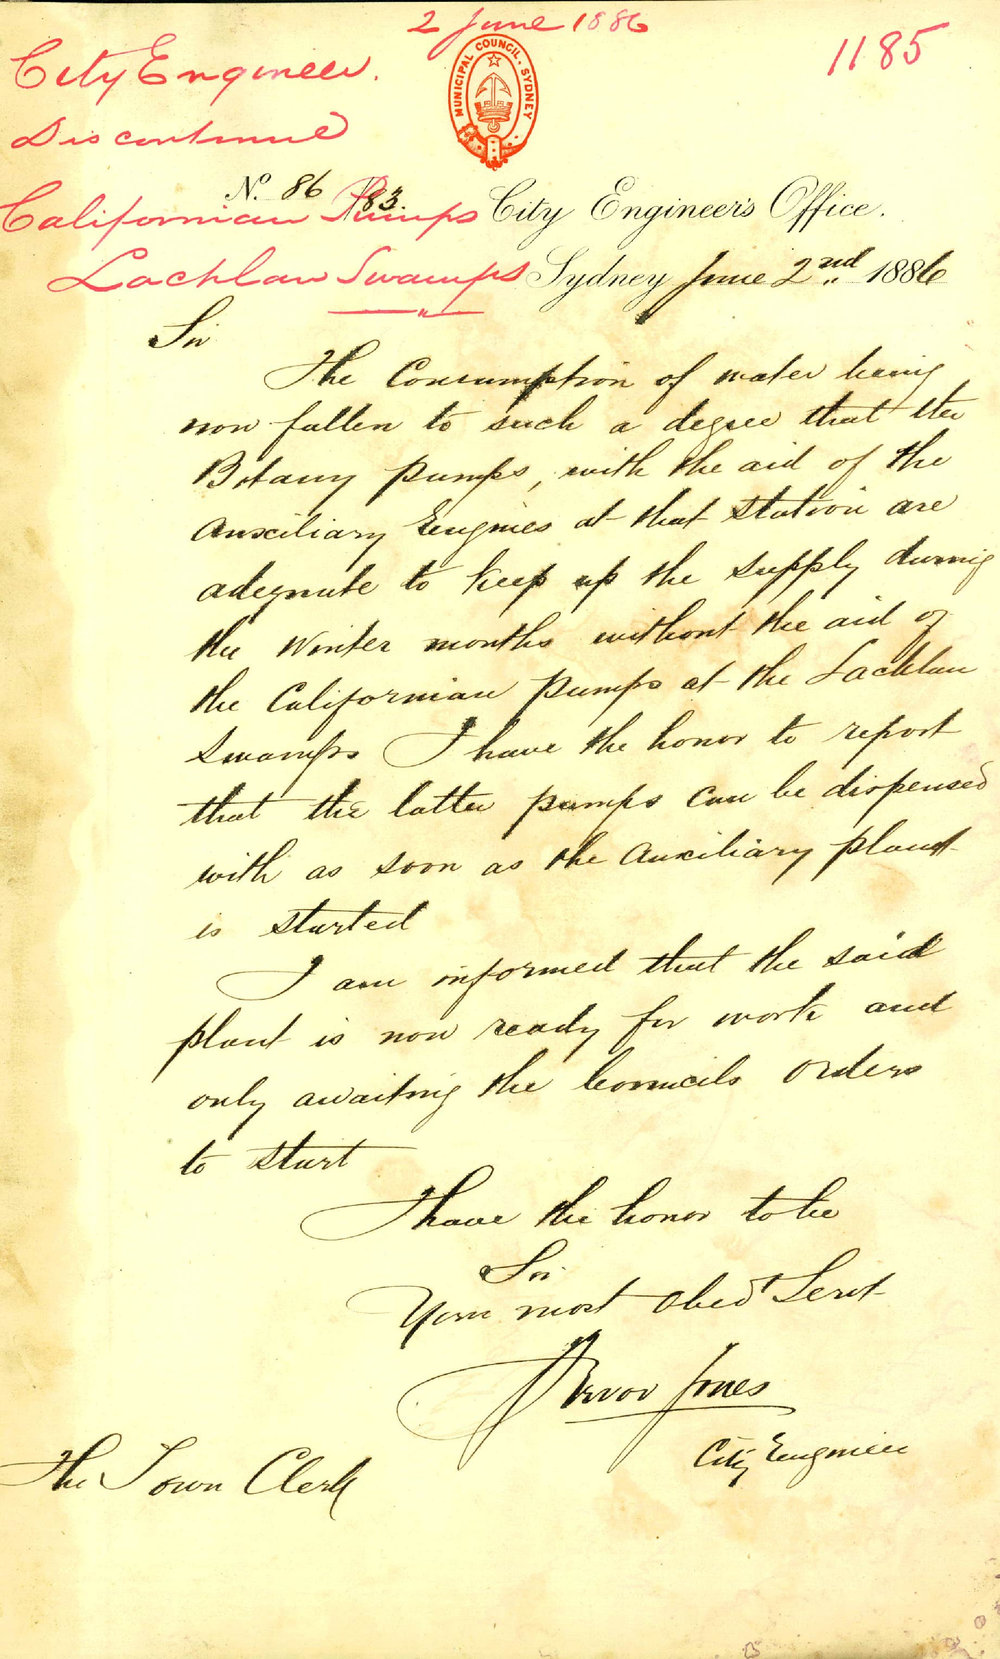 2 June 1886
1185
City Engineer.
Discontinue
Californian Pumps
Lachlan Swamps
MUNICIPAL COUNCIL. SYDNEY
No. 86 83. City Engineer's Office.
Sydney June 2nd 1886
Sir
The Consumption of water having
now fallen to such a degree that the
Botany pumps, with the aid of the
Auxiliary Engines at that Station are
adequate to keep up the supply during
the Winter months without the aid of
the Californian pumps at the Lachlan
Swamps I have the honor to report
that the latter pumps can be dispensed
with as soon as the Auxiliary plant
is started
I am informed that the said
plant is now ready for work and
only awaiting the Councils orders
to start
I have the honor to be
Sir
Your most Obedt Servt
Trevor Jones
City Engineer
The Town Clerk